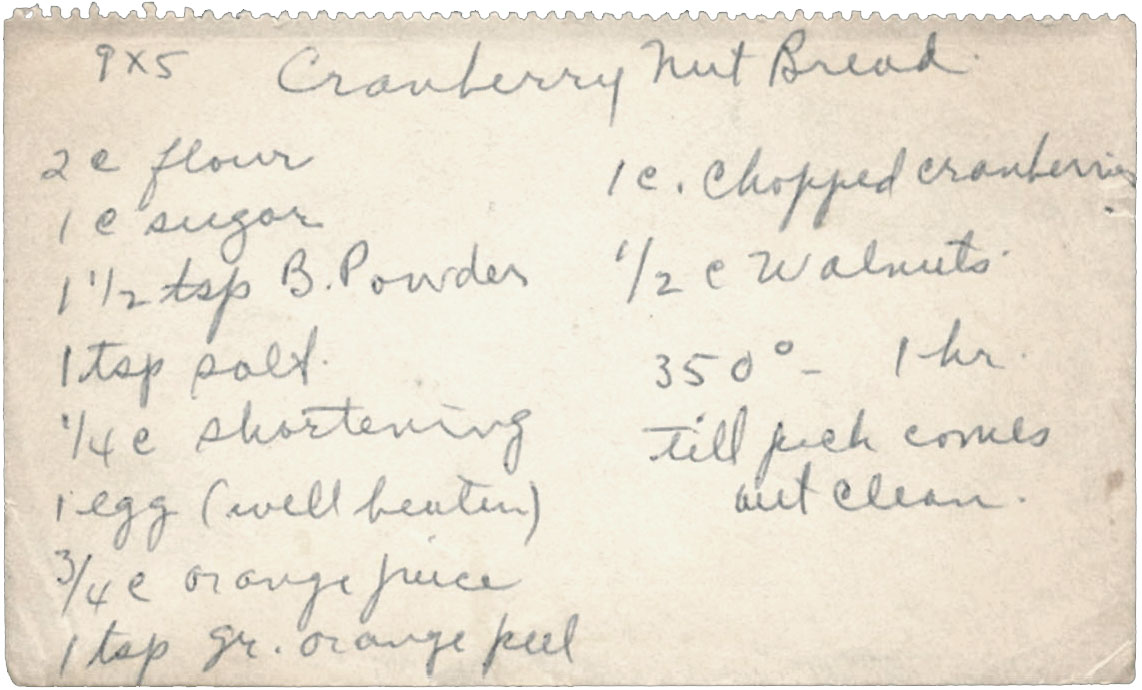 9x5 Cranberry Nut Bread
2 c flour
1 c sugar
1 1/2 tsp B. Powder
1 tsp salt.
1/4 c shortening
1 egg (well beaten)
3/4 c orange juice
1 tsp gr. orange peel
1 c. chopped cranberries
1/2 c walnuts
350° - 1 hr.
till pick comes
out clean.